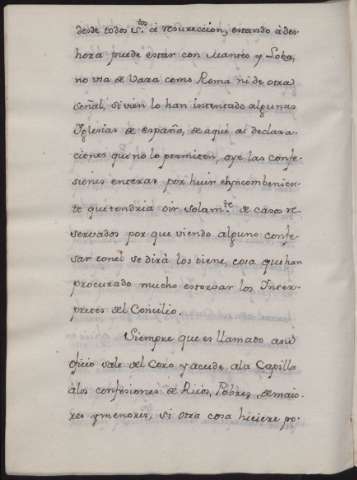 desde todos S.tos á resurreccion, estando á des
hora puede estar con Manteo y Loba,
no usa de Vara como Roma ni de otra
señal, si vien lo han intentado algunas
Iglesias de españa, de aquí ai declara
ciones que no lo permiten, oye las confe
siones enteras por huir el yncombenien
te que tendria oir solam.te de casos re
servados por que viendo alguno confe
sar con el se dirá los tiene, cosa que han
procurado mucho estorbar los Inter
pretes del Concilio.
Siempre que es llamado a su
oficio sale del Coro y accede a la Capilla
a los confesiones de Ricos, Pobres, de maio
res y menores, si otra cosa hiciere po-